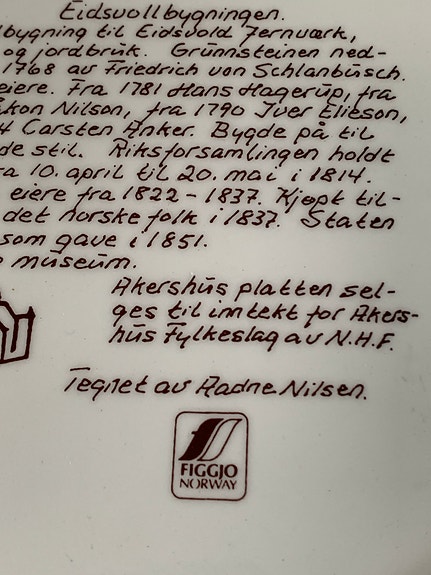 Eidsvollbygningen.
bygning til Eidsvold Jernværk,
og jordbruk. Grunnsteinen ned-
1768 av Friedrich von Schlanbusch.
eiere. Fra 1781 Hans Hagerup, fra
Nilson, fra 1790 Iver Elieson,
4 Carsten Anker. Bygde på til
de stil. Riksforsamlingen holdt
10. april til 20. mai i 1814.
eiere fra 1822-1837. Kjøpt til-
det norske folk i 1837. Staten
som gave i 1851.
museum.
Akershus platten sel-
ges til inntekt for Akers-
hus Fylkeslag av N.H.F.
Tegnet av Radne Nilsen.
FIGGJO
NORWAY